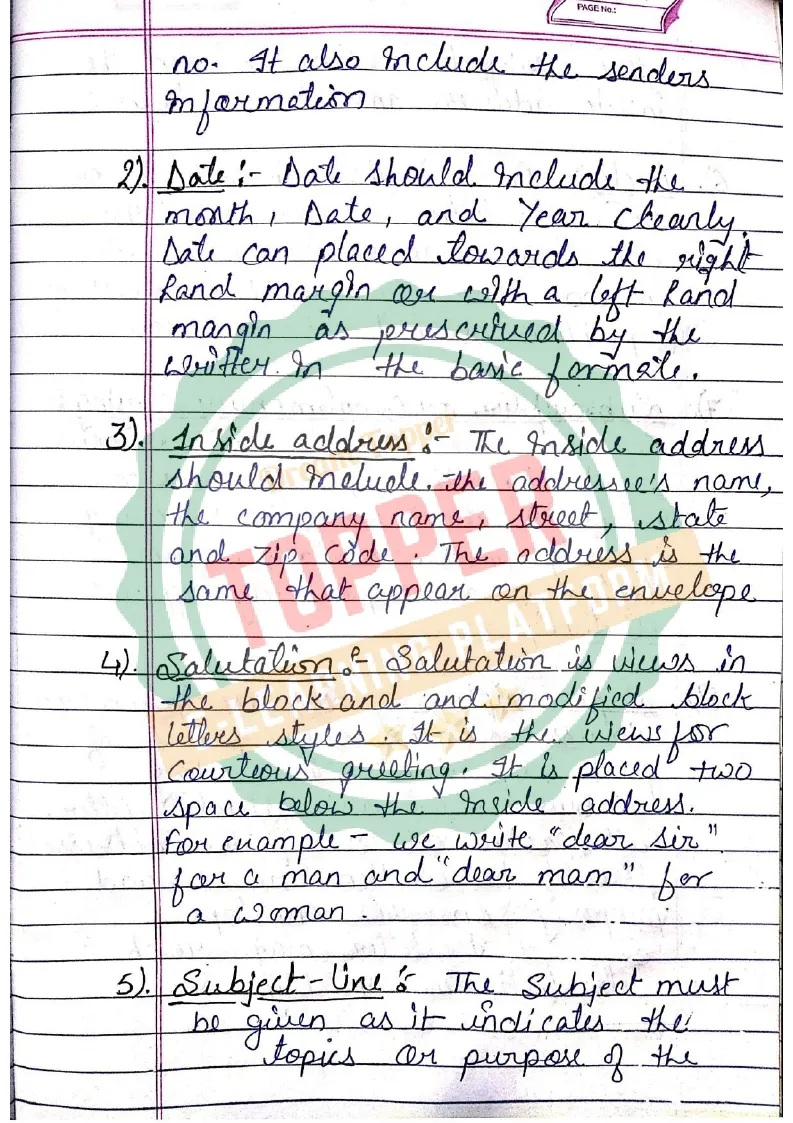 PAGE No.:
no. It also include the senders
information
2). Date :- Date should include the
month, Date, and Year clearly.
Date can placed towards the right
hand margin or with a left hand
margin as prescrived by the
writter in the basic formate.
3). Inside address :- The inside address
should include the addressee's name,
the company name, street, state
and zip code. The address is the
same that appear on the envelope
4). Salutation :- Salutation is views in
the block and and modified block
letters styles. It is the views for
Courteous greeting. It is placed two
space below the inside address.
For example - we write "dear sir"
for a man and "dear mam" for
a woman.
5). Subject-line :- The Subject must
be given as it indicates the
topics or purpose of the
Dream Topper
TOPPER
E-LEARNING PLATFORM